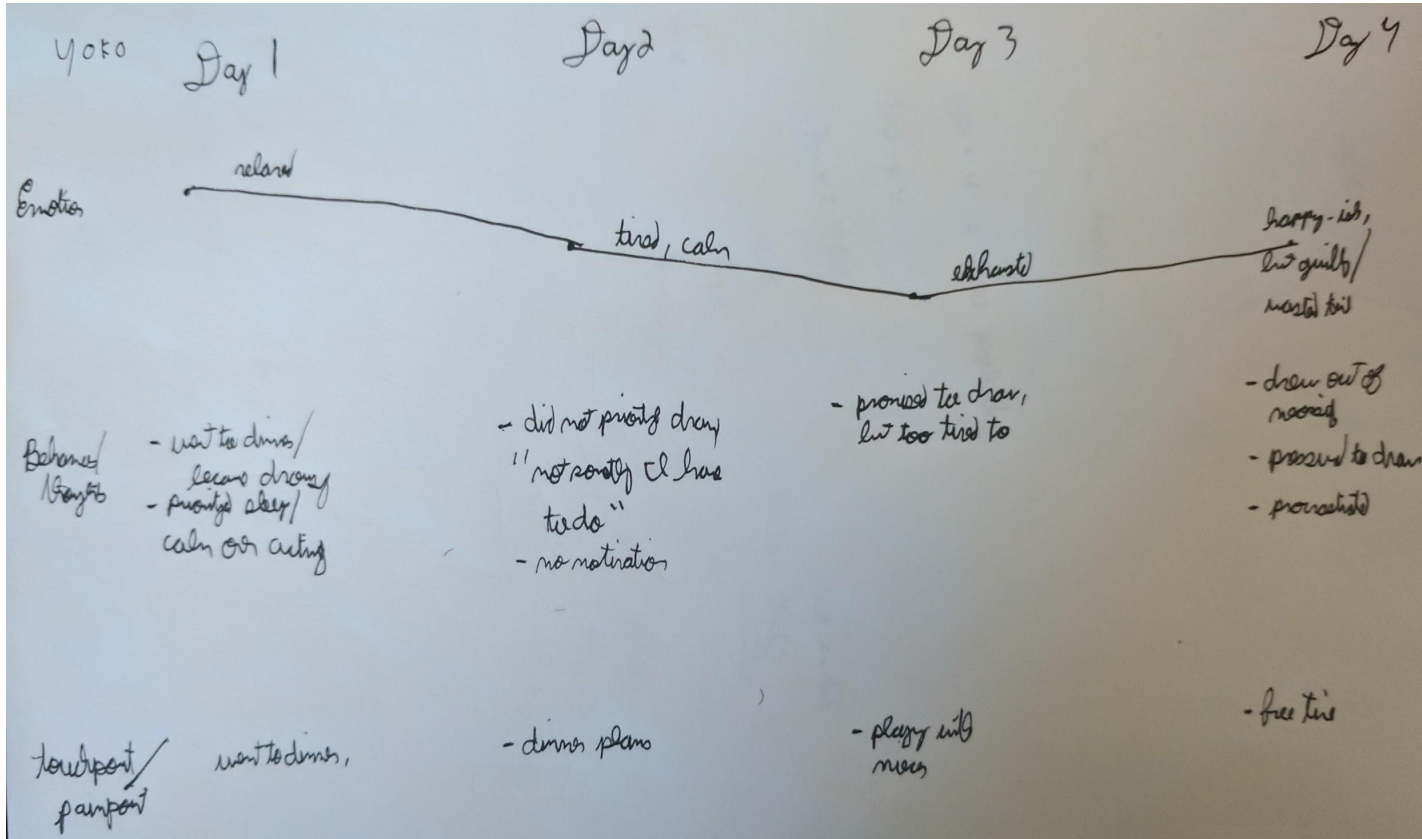 Yoko Day 1 Day 2 Day 3 Day 4
Emotion
relaxed
tired, calm
exhausted
happy-ish,
but guilty/
wasted time
Behaviors/
thoughts
- went to dinner/
became drowsy
- prioritized sleep/
calm over acting
- did not prioritize drawing
"not something I have
to do"
- no motivation
- promised to draw,
but too tired to
- drew out of
- pressured to draw
- procrastinated
touchpoint/
painpoint
went to dinner,
- dinner plans
- playing with
nieces
- free time